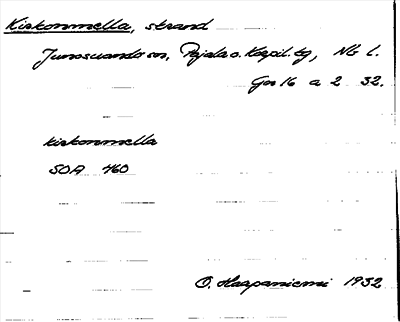 Kirkonmella, strand
Junosuando sn, Pajala o. Korpil. tg, Nb l.
Gos 16 a 2 32.
kirkonmella
SOA 460
O. Haapaniemi 1932